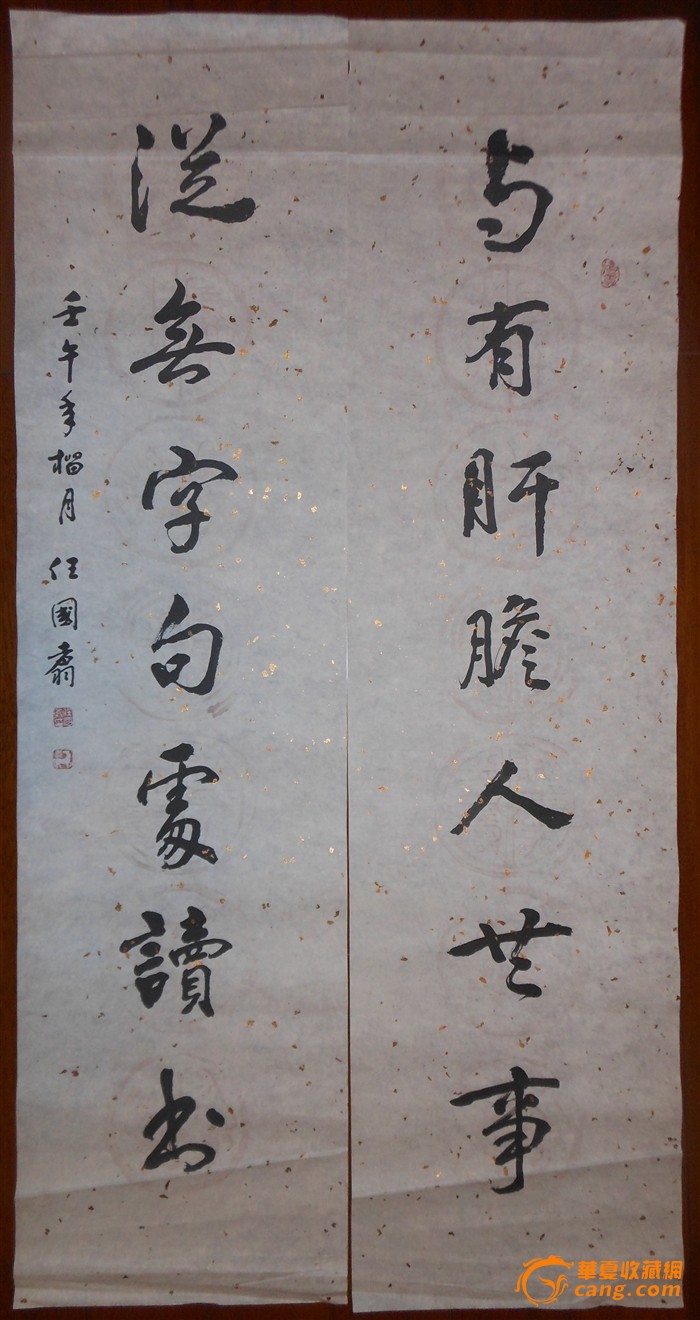 与有肝膽人共事
從無字句處讀书
壬午年榴月 任國
華夏收藏網
cang.com